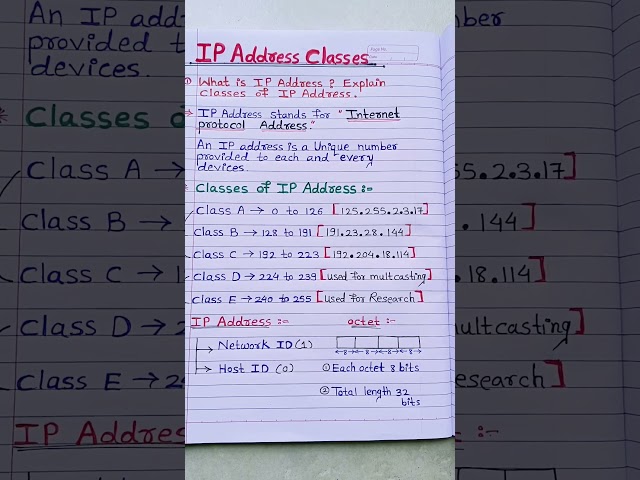 IP Address Classes
Page No.
① What is IP Address ? Explain
classes of IP Address.
→ IP Address stands for "Internet
protocol Address."
An IP address is a Unique number
provided to each and every
devices.
Classes of IP Address :-
Class A → 0 to 126 [125.255.2.3.17]
Class B → 128 to 191 [191.23.28.144]
Class C → 192 to 223 [192.204.18.114]
Class D → 224 to 239 [used for multcasting]
Class E → 240 to 255 [used for Research]
IP Address :- octet :-
→ Network ID (1)
←8→←8→←8→←8→
→ Host ID (0) ① Each octet 8 bits
② Total length 32
bits
An IP add
provided t
devices.
* Classes o
Class A →
Class B →
Class C → 1
Class D → 2
Class E → 24
IP Addres
mber
55.2.3.17]
.144]
.18.114]
ultcasting]
esearch]
:-